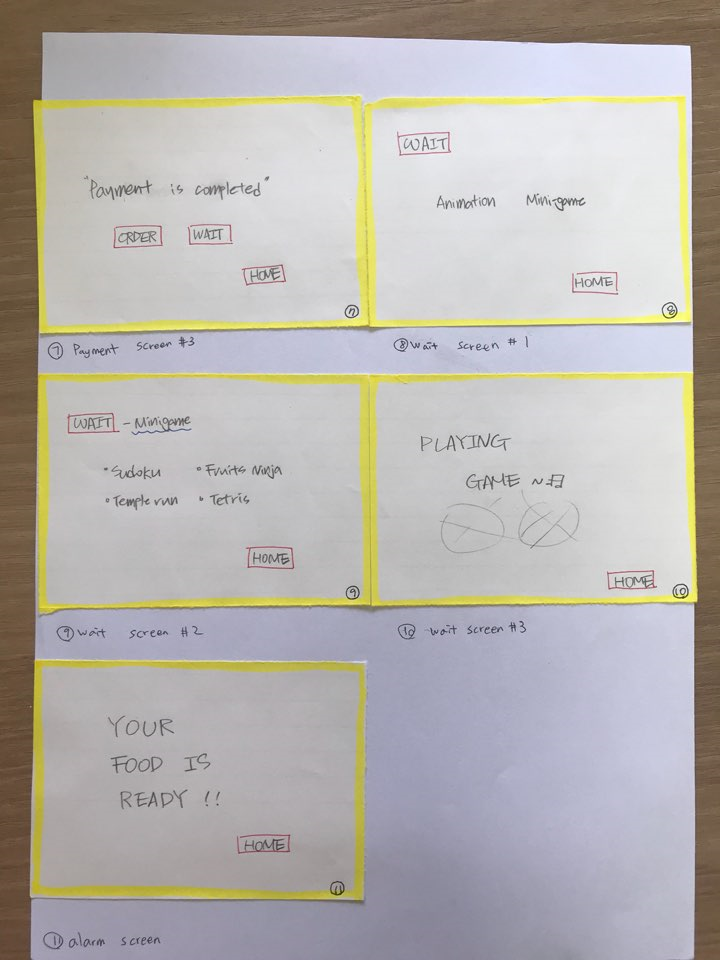 "Payment is completed"
ORDER WAIT
HOME
⑦
⑦ Payment screen #3
WAIT
Animation Mini-game
HOME
⑧
⑧ wait screen #1
WAIT - Minigame
• Sudoku • Fruits Ninja
• Temple run • Tetris
HOME
⑨
⑨ wait screen #2
PLAYING
GAME ~
HOME
⑩
⑩ wait screen #3
YOUR
FOOD IS
READY !!
HOME
⑪
⑪ alarm screen